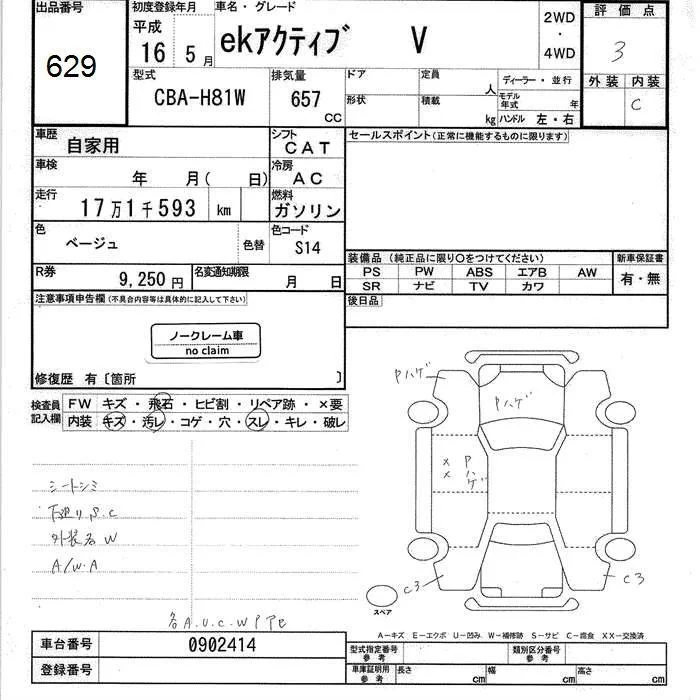 出品番号
629
初度登録年月
平成
16 5月
車名・グレード
ekアクティブ V
2WD
・
4WD
評価点
3
外装 内装
C
型式
CBA-H81W
排気量
657
CC
ドア
形状
定員
人
積載
kg
ディーラー・並行
モデル年式 年
ハンドル 左・右
車歴
自家用
シフト
CAT
セールスポイント(正常に機能するものに限ります)
車検
年 月( 日)
冷房
AC
走行
17万1千593 km
燃料
ガソリン
色
ベージュ
色替
色コード
S14
装備品(純正品に限り○をつけてください)
新車保証書
PS PW ABS エアB AW
SR ナビ TV カワ
有・無
R券
9,250円
名変通知期限
月 日
後日品
注意事項申告欄(不具合内容等は具体的に記入して下さい)
ノークレーム車
no claim
修復歴 有〔箇所 〕
検査員記入欄
FW キズ・飛石・ヒビ割・リペア跡・×要
内装 キズ・汚レ・コゲ・穴・スレ・キレ・破レ
Pハゲ
Pハゲ
× P
× ハゲ
シートシミ
下廻りS.C
外装各W
A/W.A
C3
C3
スペア
各A.U.C.W
A-キズ E-エクボ U-凹み W-補修跡 S-サビ C-腐食 XX-交換済
車台番号
0902414
登録番号
型式指定番号
参考
類別区分番号
参考
車庫証明用
参考
長さ cm
幅 cm
高さ cm